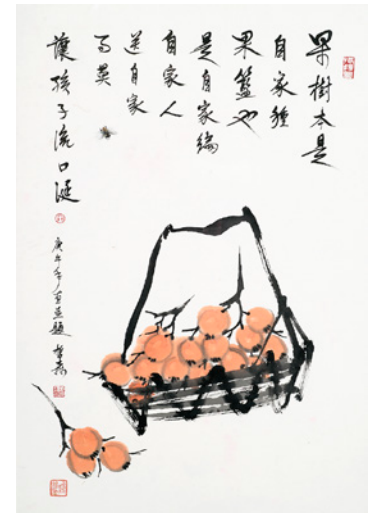 果樹本是
自家種
果籃也
是自家編
自家人
送自家
為莫
讓孩子流口涎
庚午年